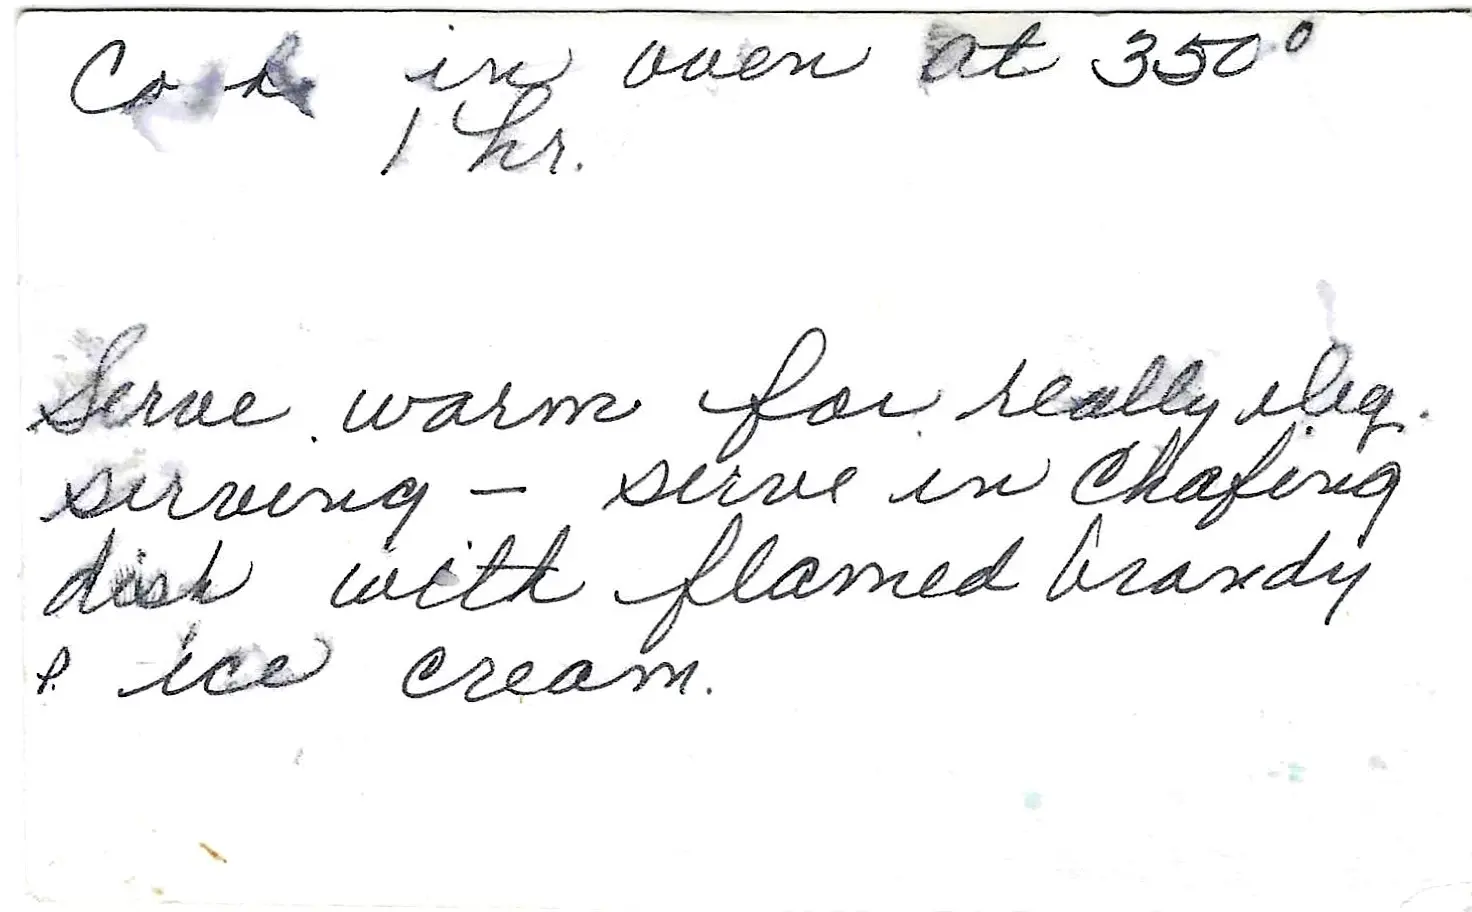 Cook in oven at 350°
1 hr.
Serve warm for really eleg.
serving - serve in Chafing
dish with flamed brandy
& ice cream.